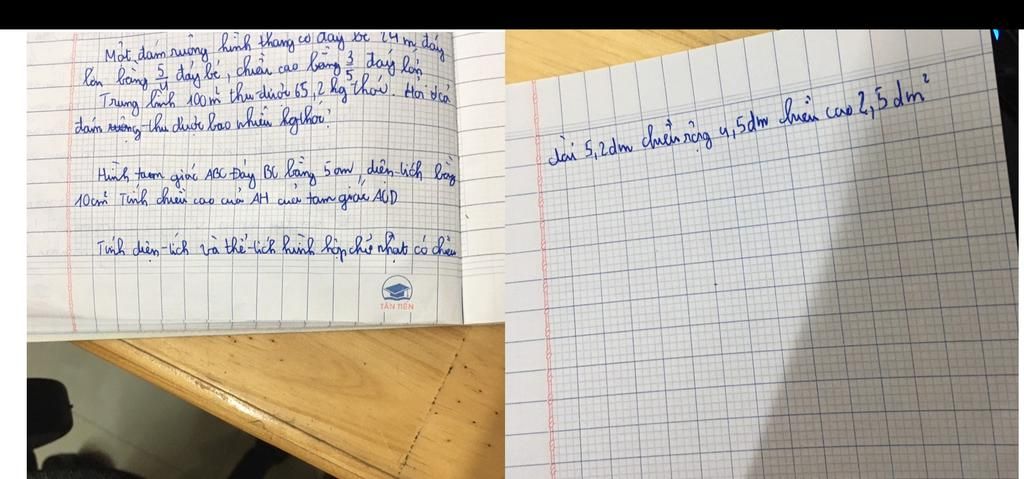 Một đám ruộng hình thang có đáy bé 24 m, đáy
lớn bằng 5/4 đáy bé, chiều cao bằng 3/5 đáy lớn
Trung bình 100m² thu được 65,2 kg thóc. Hỏi cả
đám ruộng thu được bao nhiêu kg thóc?
Hình tam giác ABC Đáy BC bằng 5 cm, diện tích bằng
10cm² Tính chiều cao của AH của tam giác ACD
Tính diện tích và thể tích hình hộp chữ nhật có chiều
TÂN TIẾN
dài 5,2dm chiều rộng 4,5dm chiều cao 2,5dm²